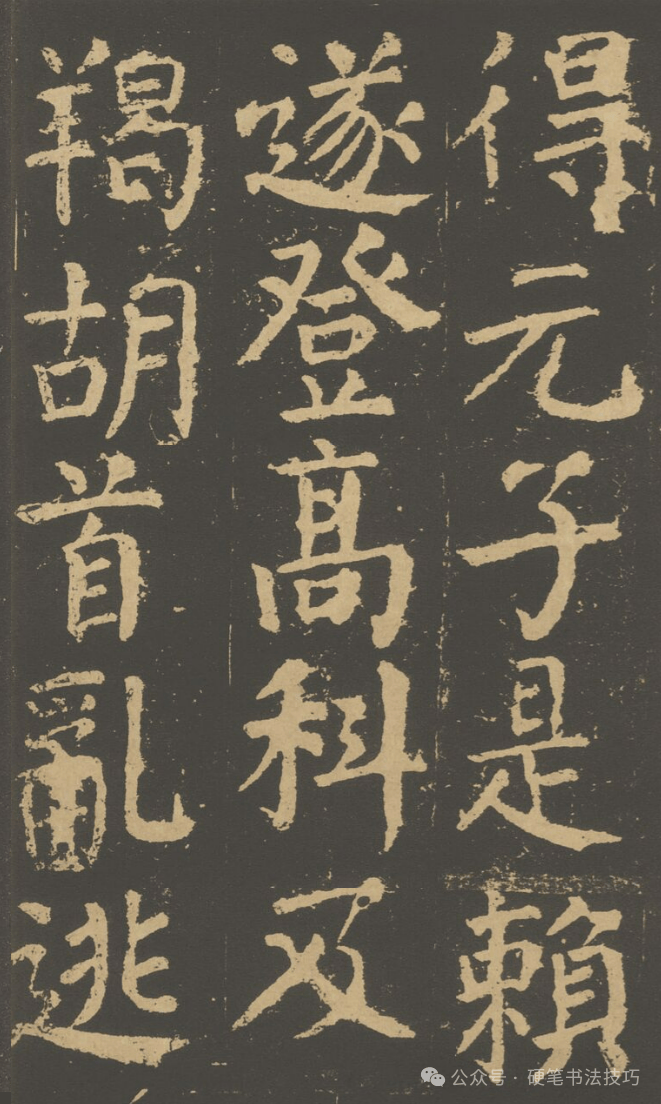 得元子是賴
遂登高科及
羯胡首亂逃
公众号 · 硬笔书法技巧